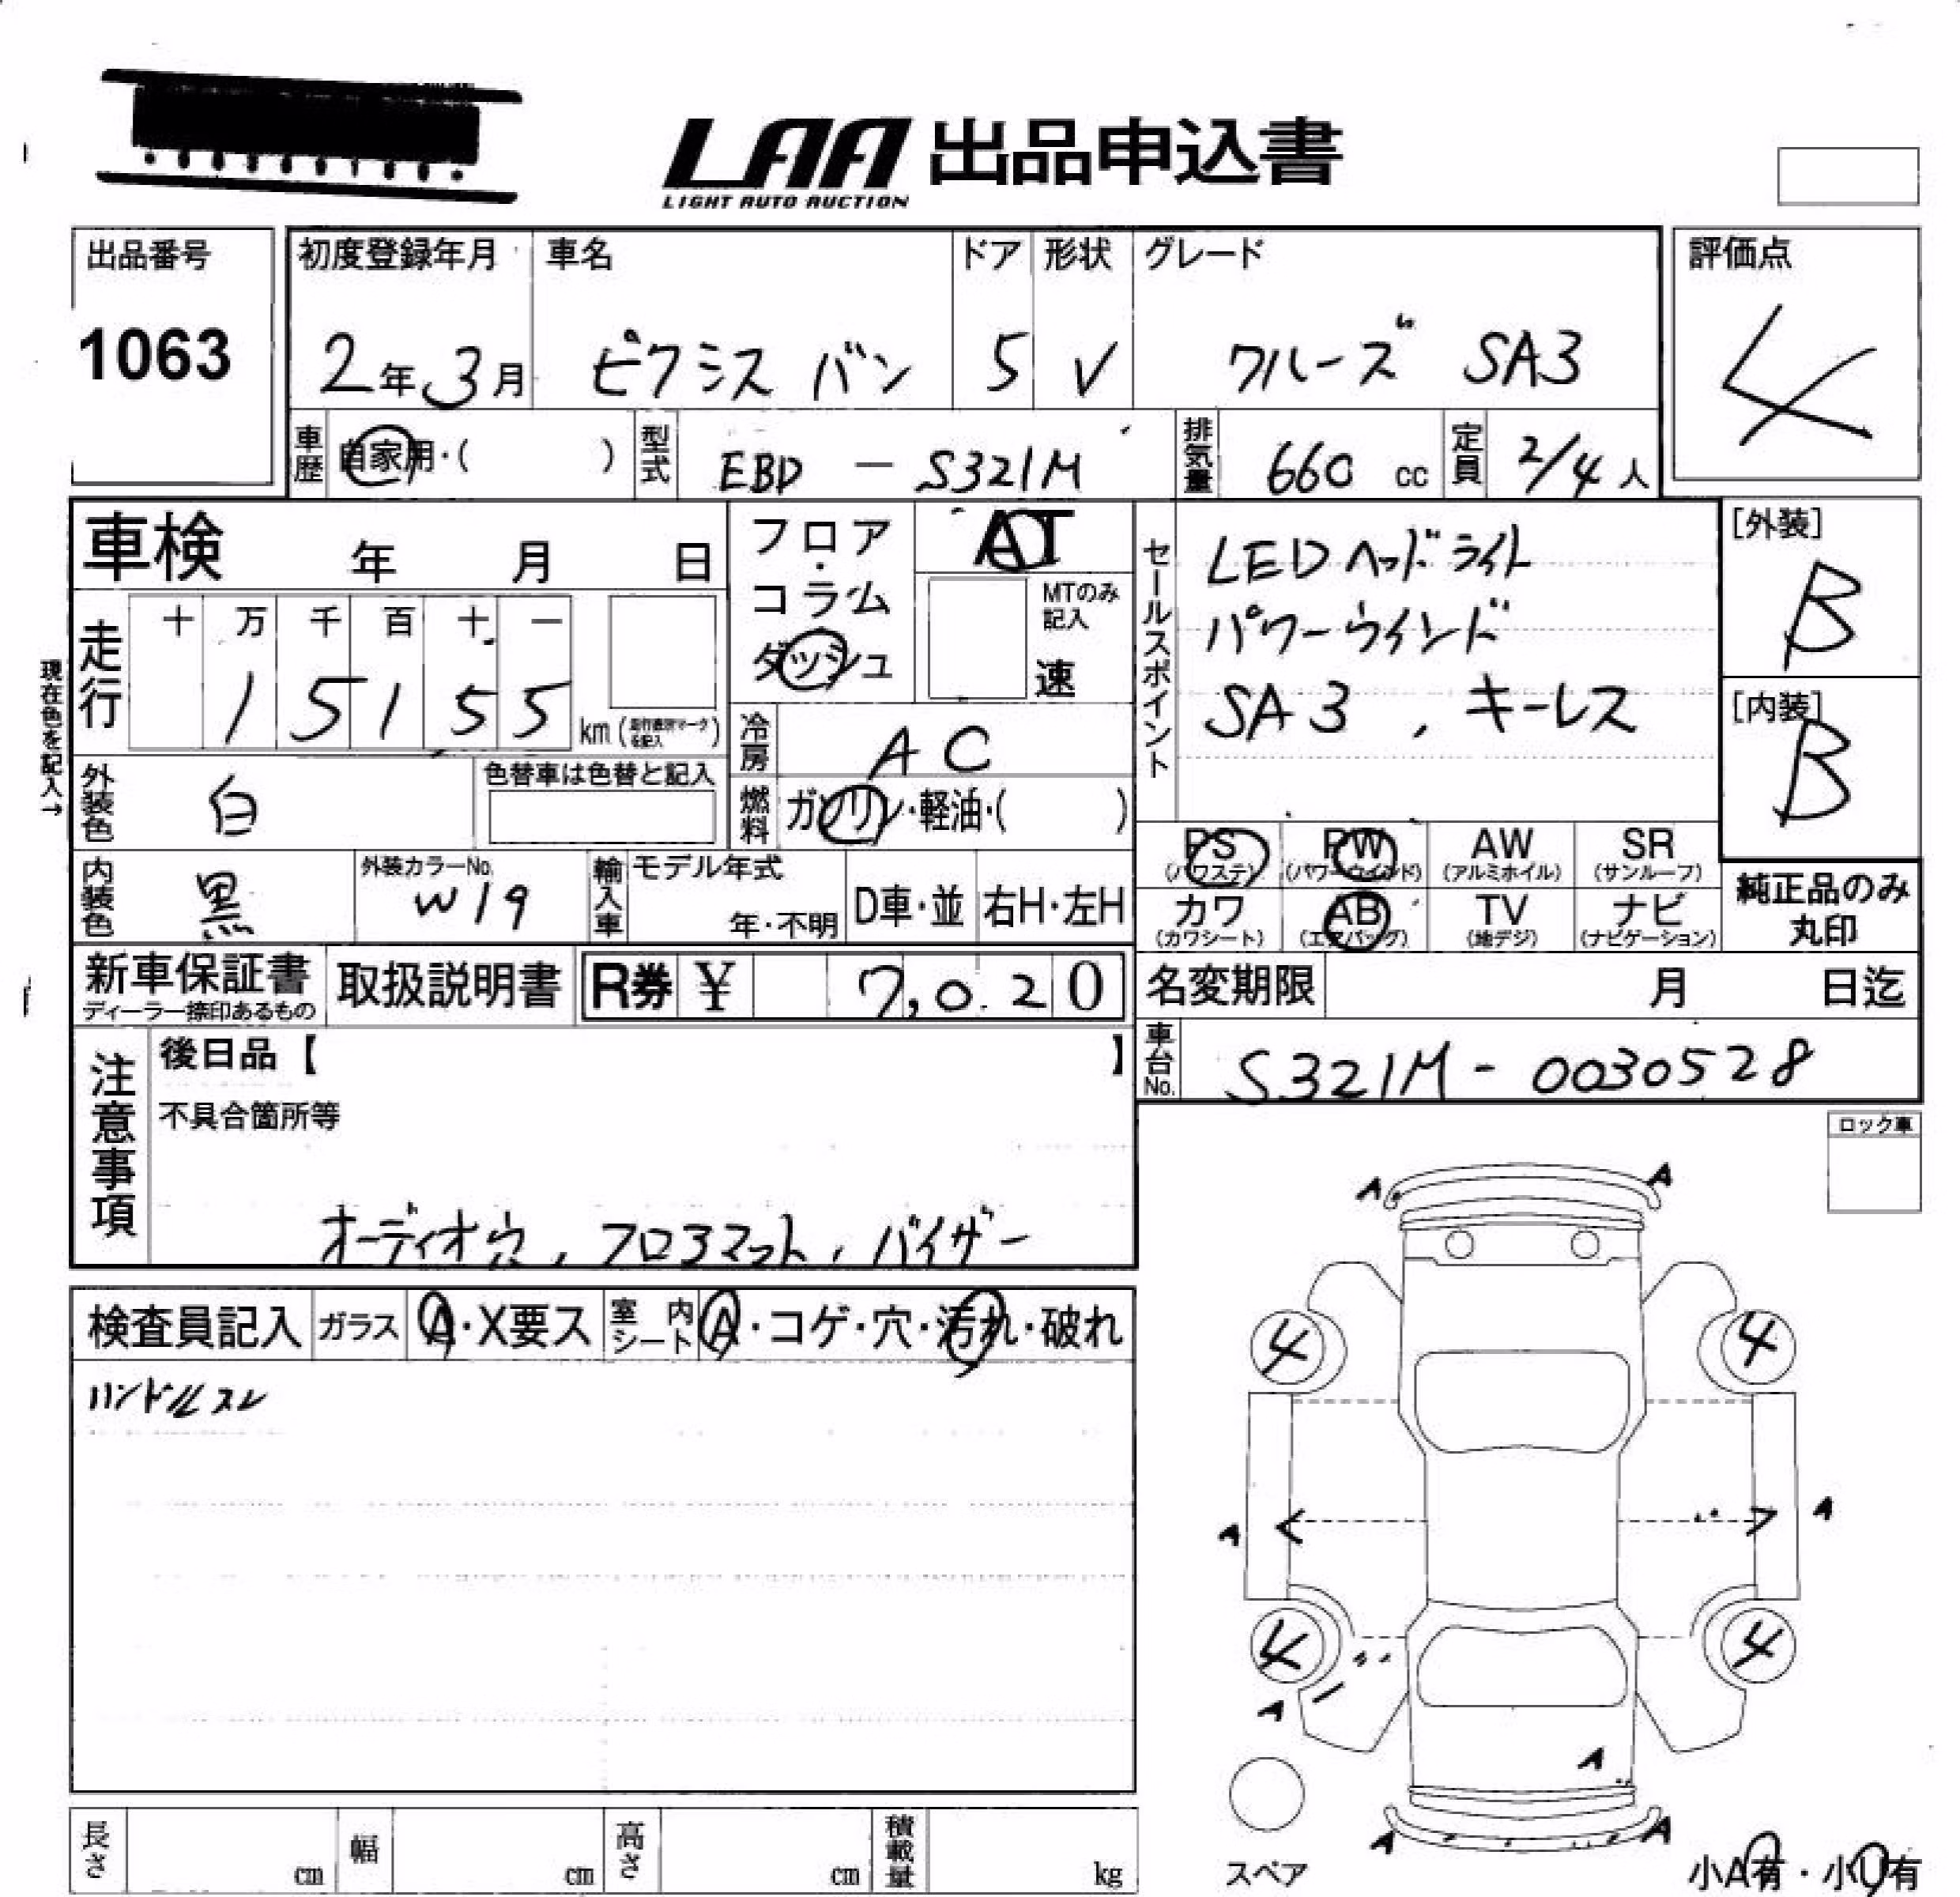 LAA 出品申込書
LIGHT AUTO AUCTION
出品番号
1063
初度登録年月 車名 ドア 形状 グレード
2年3月 ピクシス バン 5 V クルーズ SA3
評価点
4
車歴 自家用・( ) 型式 EBD - S321M 排気量 660 cc 定員 2/4人
車検 年 月 日
フロア・コラム ダッシュ
AT
MTのみ記入
速
セールスポイント
LEDヘッドライト
パワーウィンド
SA3, キーレス
[外装]
B
[内装]
B
現在色を記入→
走行
十 万 千 百 十 一
1 5 1 5 5 km
冷房 AC
外装色 白
色替車は色替と記入
燃料 ガソリン・軽油・( )
PS (パワステ) PW (パワーウィンド) AW (アルミホイル) SR (サンルーフ)
カワ (カワシート) AB (エアバッグ) TV (地デジ) ナビ (ナビゲーション)
純正品のみ丸印
内装色 黒
外装カラーNo. W19
輸入車 モデル年式 年・不明 D車・並 右H・左H
新車保証書
ディーラー捺印あるもの
取扱説明書
R券 ¥ 7,020
名変期限 月 日迄
車台No. S321M-0030528
注意事項
後日品【 】
不具合箇所等
オーディオ穴, フロアマット, バイザー
ロック車
検査員記入 ガラス A・X要ス 室内シート A・コゲ・穴・汚れ・破れ
ハンドルスレ
A A
4 4
A A
4 4
A
A
A A
スペア
小A有・小U有
長さ cm 幅 cm 高さ cm 積載量 kg